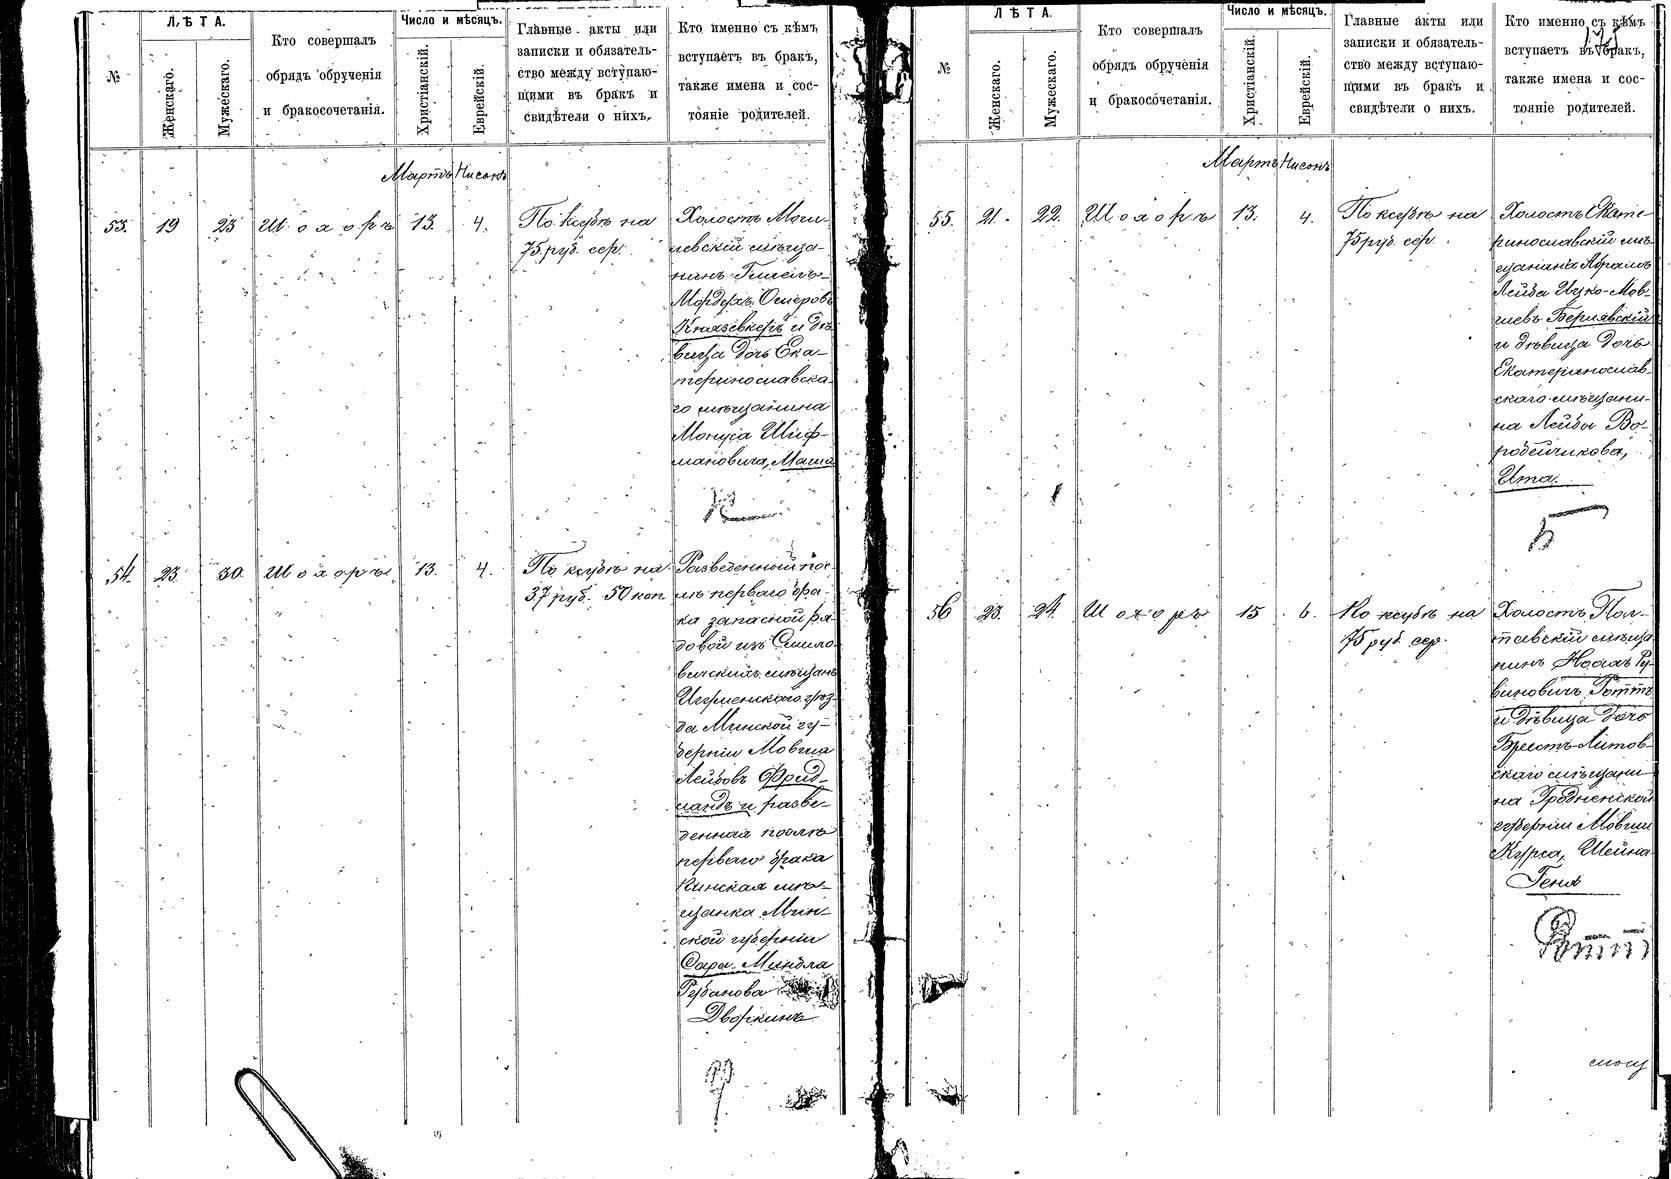 №
ЛѢТА.
Женскаго.
Мужескаго.
Кто совершалъ
обрядъ обрученія
и бракосочетанія.
Число и мѣсяцъ.
Христіанскій.
Еврейскій.
Главные акты или
записки и обязатель-
ство между вступаю-
щими въ бракъ и
свидѣтели о нихъ.
Кто именно съ кѣмъ
вступаетъ въ бракъ,
также имена и сос-
тояніе родителей.
Мартъ Нисонъ
53. 19 23 Шохоръ 13. 4.
По ксубѣ на
75 руб. сер.
Холостъ Моги-
левскій мѣща-
нинъ
Мордухъ Омеровъ
Князевкеръ и дѣ
вица дочь Ека-
теринославска-
го мѣщанина
Монуса Шиф-
мановича, Маша
54. 23. 30. Шохоръ 13. 4.
По ксубѣ на
37 руб. 50 коп
Разведенный пос-
лѣ перваго бра-
ка запасной ря-
довой изъ Смило-
вичскихъ мѣщанъ
Игуменскаго уѣз-
да Минской гу-
берніи Мовша
Лейбовъ Фрид-
ландъ и разве-
денная послѣ
перваго брака
мѣ-
щанка Мин-
ской губерніи
Сара Миндля
Рубанова
Дворкинъ
№
ЛѢТА.
Женскаго.
Мужескаго.
Кто совершалъ
обрядъ обрученія
и бракосочетанія.
Число и мѣсяцъ.
Христіанскій.
Еврейскій.
Главные акты или
записки и обязатель-
ство между вступаю-
щими въ бракъ и
свидѣтели о нихъ.
Кто именно съ кѣмъ
вступаетъ въ бракъ,
также имена и сос-
тояніе родителей.
Мартъ Нисонъ
55. 21. 22. Шохоръ 13. 4.
По ксубѣ на
75 руб. сер.
Холостъ Екате-
ринославскій мѣ-
щанинъ Абрамъ
Лейба Ицко-Мов-
шевъ Берлявскій
и дѣвица дочь
Екатеринослав-
скаго мѣщани-
на Лейбы Во-
робейчикова,
Ита.
Б
56 23. 24. Шохоръ 15 6.
По ксубѣ на
75 руб. сер.
Холостъ Пол-
тавскій мѣща
нинъ Носахъ Ру-
виновичъ Готтъ
и дѣвица дочь
Брестъ-Литов-
скаго мѣщани-
на Гродненской
губерніи Мовши
Курса, Шейна-
Геня